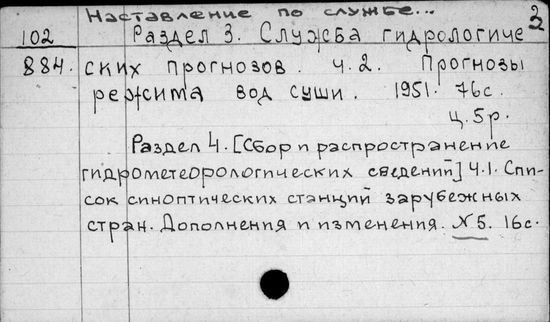 Наставление по службе... 2
102 Раздел 3. Служба гидрологиче
884. ских прогнозов. ч.2. Прогнозы
режима вод суши. 1951. 76с.
ц. 5р.
Раздел 4. [Сбор и распространение
гидрометеорологических сведений] Ч.1. Спи-
сок синоптических станций зарубежных
стран. Дополнения и изменения. № 5. 16с.